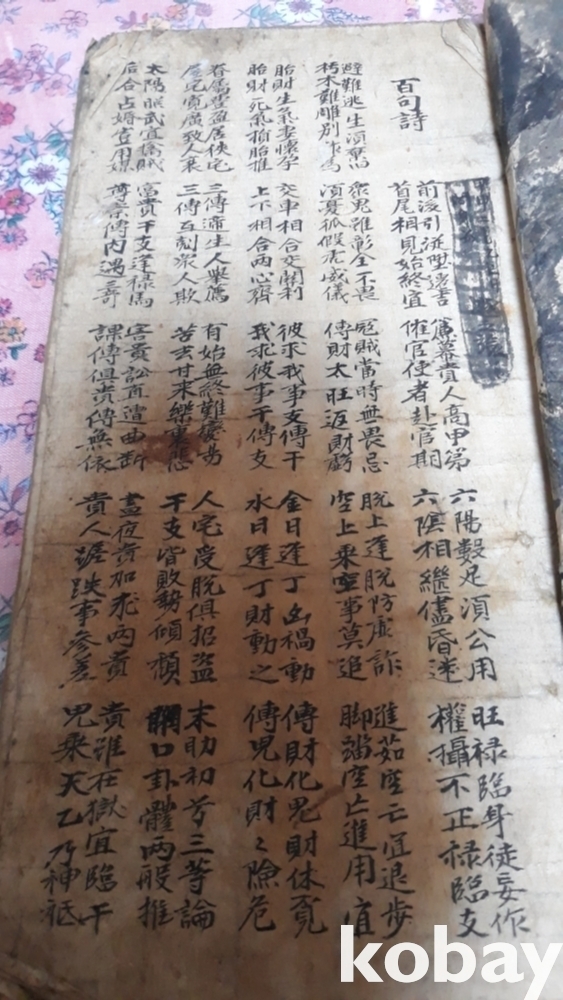 百句詩
前後引從陞遷吉
首尾相見始終宜
簾幕貴人高甲第
催官使者赴官期
六陽數足須公用
六陰相継儘昏迷
旺祿臨身徒妄作
權攝不正祿臨支
避難逃生須棄旧
朽木難雕別作為
衆鬼雖彰全不畏
須憂狐假虎威儀
冦賊當時無畏忌
傳財太旺返財虧
脫上逢脫防虛詐
空上乘空事莫追
進茹空亡宜退步
脚踏空亡進用宜
胎財生氣妻懷孕
胎財死氣損胎推
交車相合交関利
上下相合兩心齊
彼求我事支傳干
我求彼事干傳支
金日逢丁凶禍動
水日逢丁財動之
傳財化鬼財休覓
傳鬼化財々險危
眷属豊盈居狹宅
屋宅寬廣致人衰
三傳遞生人舉薦
三傳互剋衆人欺
有始無終難変易
苦去甘來樂裏悲
人宅受脫俱招盜
干支皆敗勢傾頹
末助初兮三等論
閉口卦體兩般推
太陽照武宜擒賊
后合占婚豈用媒
富貴干支逢祿馬
尊崇傳内遇三奇
害貴訟直遭曲断
課傳俱貴傳無依
晝夜貴加求兩貴
貴人蹉跌事參差
貴雖在獄宜臨干
鬼乘天乙乃神祇
kobay